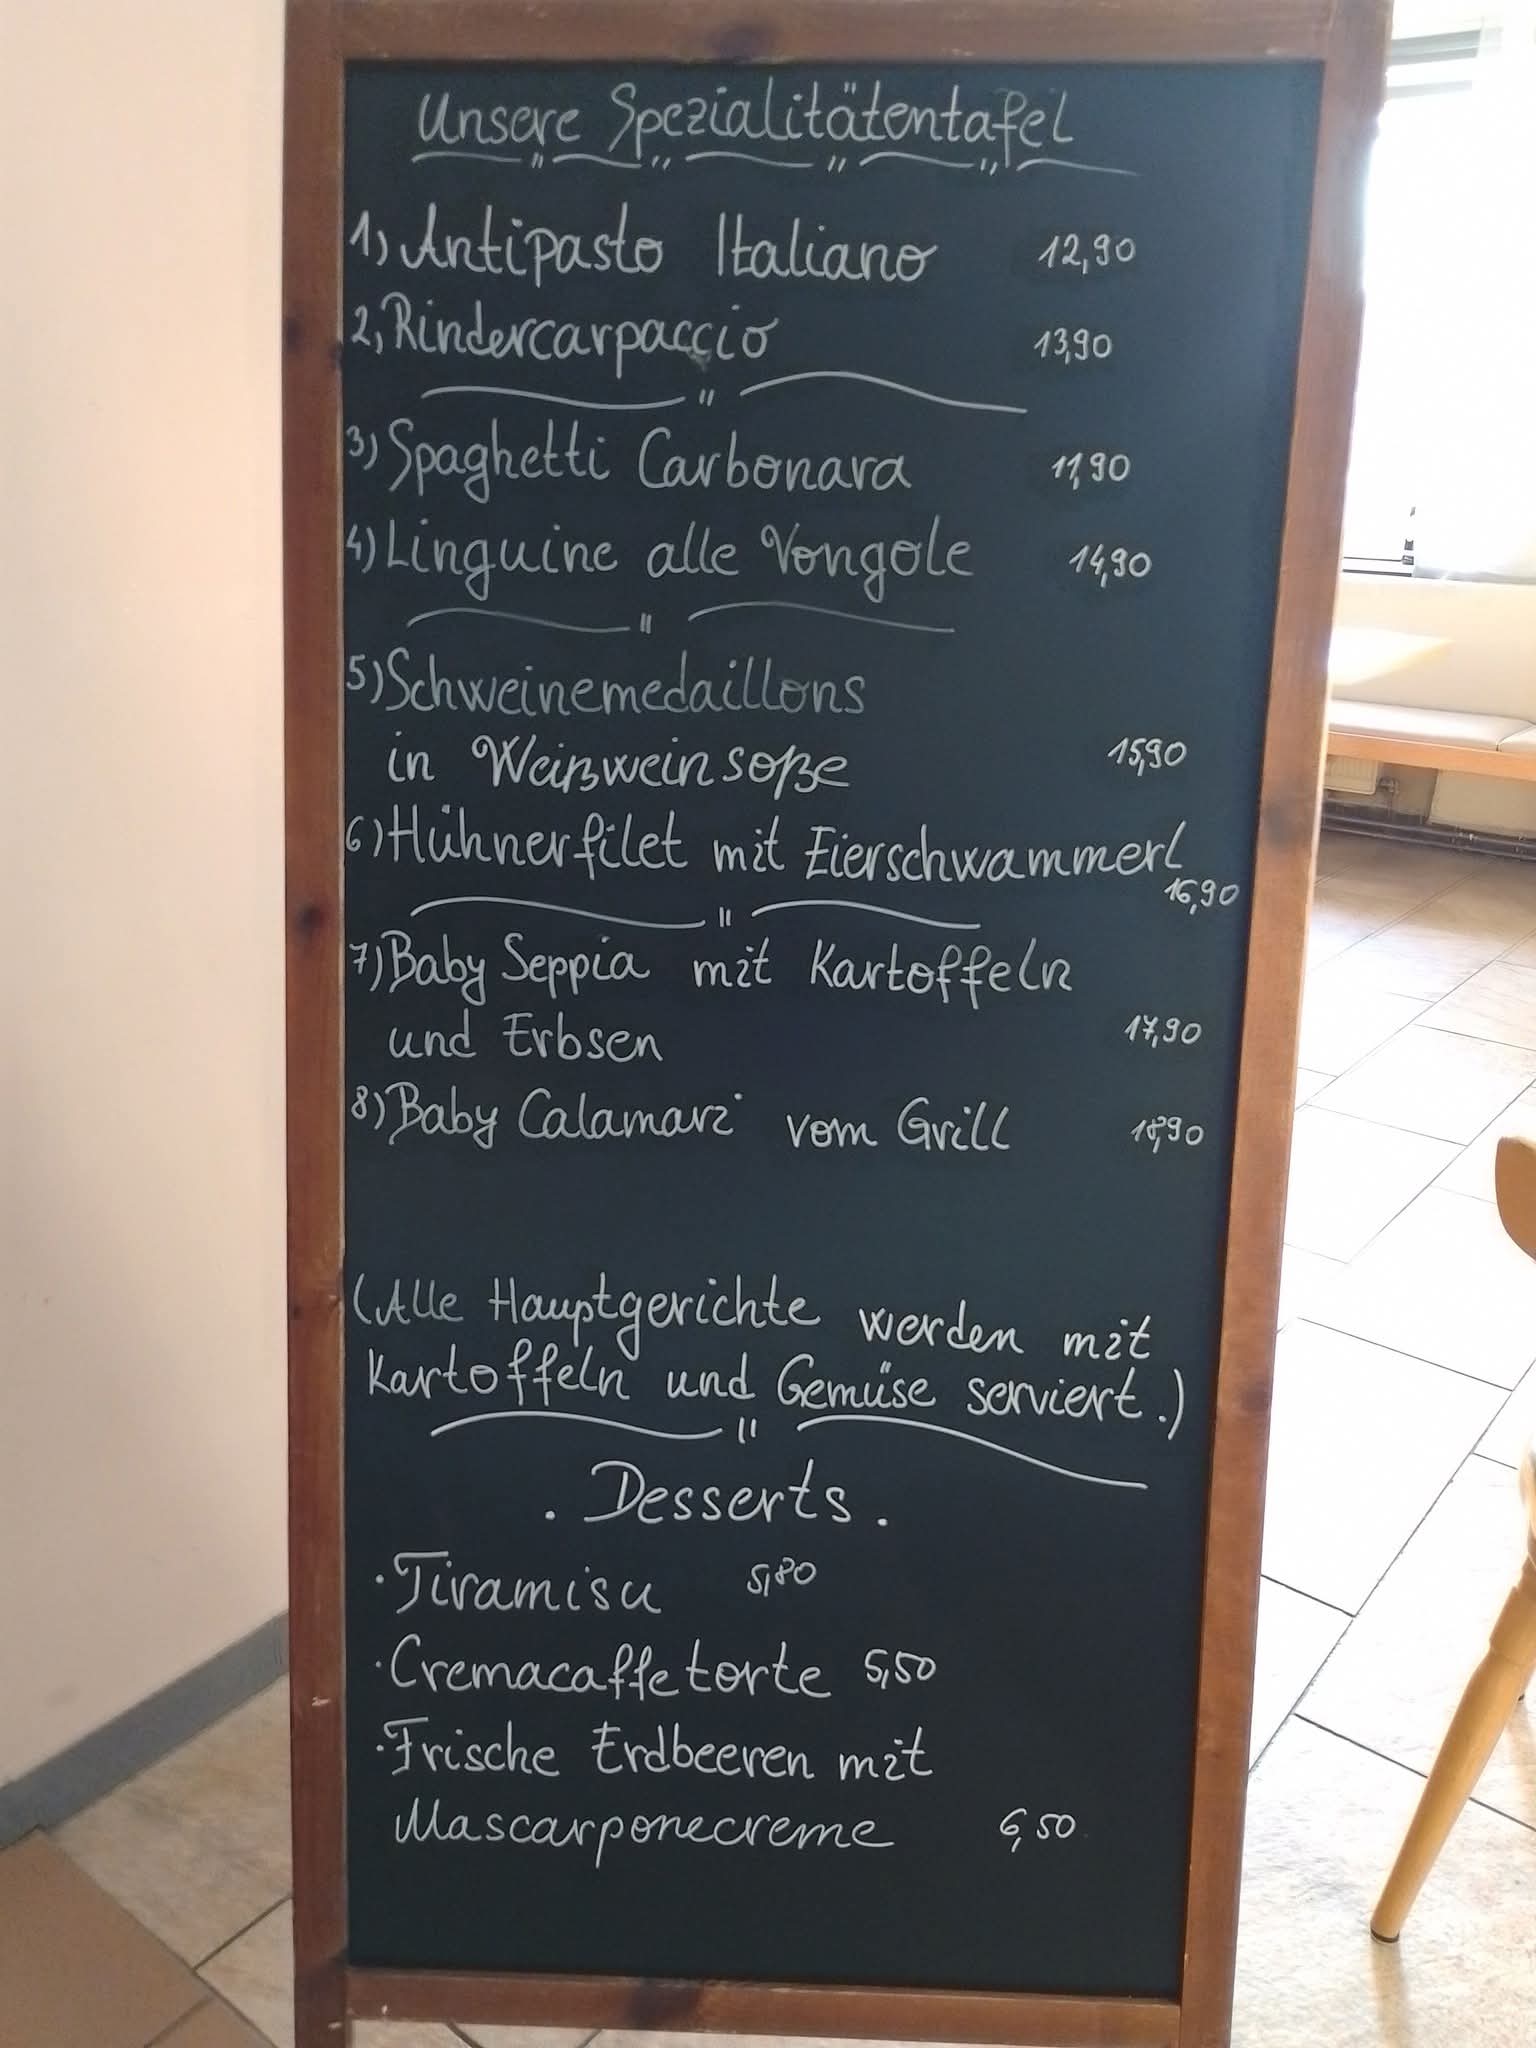 Unsere Spezialitätentafel
1) Antipasto Italiano 12,90
2, Rindercarpaccio 13,90
3) Spaghetti Carbonara 11,90
4) Linguine alle Vongole 14,90
5) Schweinemedaillons
in Weißweinsoße 15,90
6) Hühnerfilet mit Eierschwammerl
16,90
7) Baby Seppia mit Kartoffeln
und Erbsen 17,90
8) Baby Calamari vom Grill 18,90
(Alle Hauptgerichte werden mit
Kartoffeln und Gemüse serviert.)
. Desserts .
· Tiramisu 5,80
· Cremacaffetorte 5,50
· Frische Erdbeeren mit
Mascarponecreme 6,50